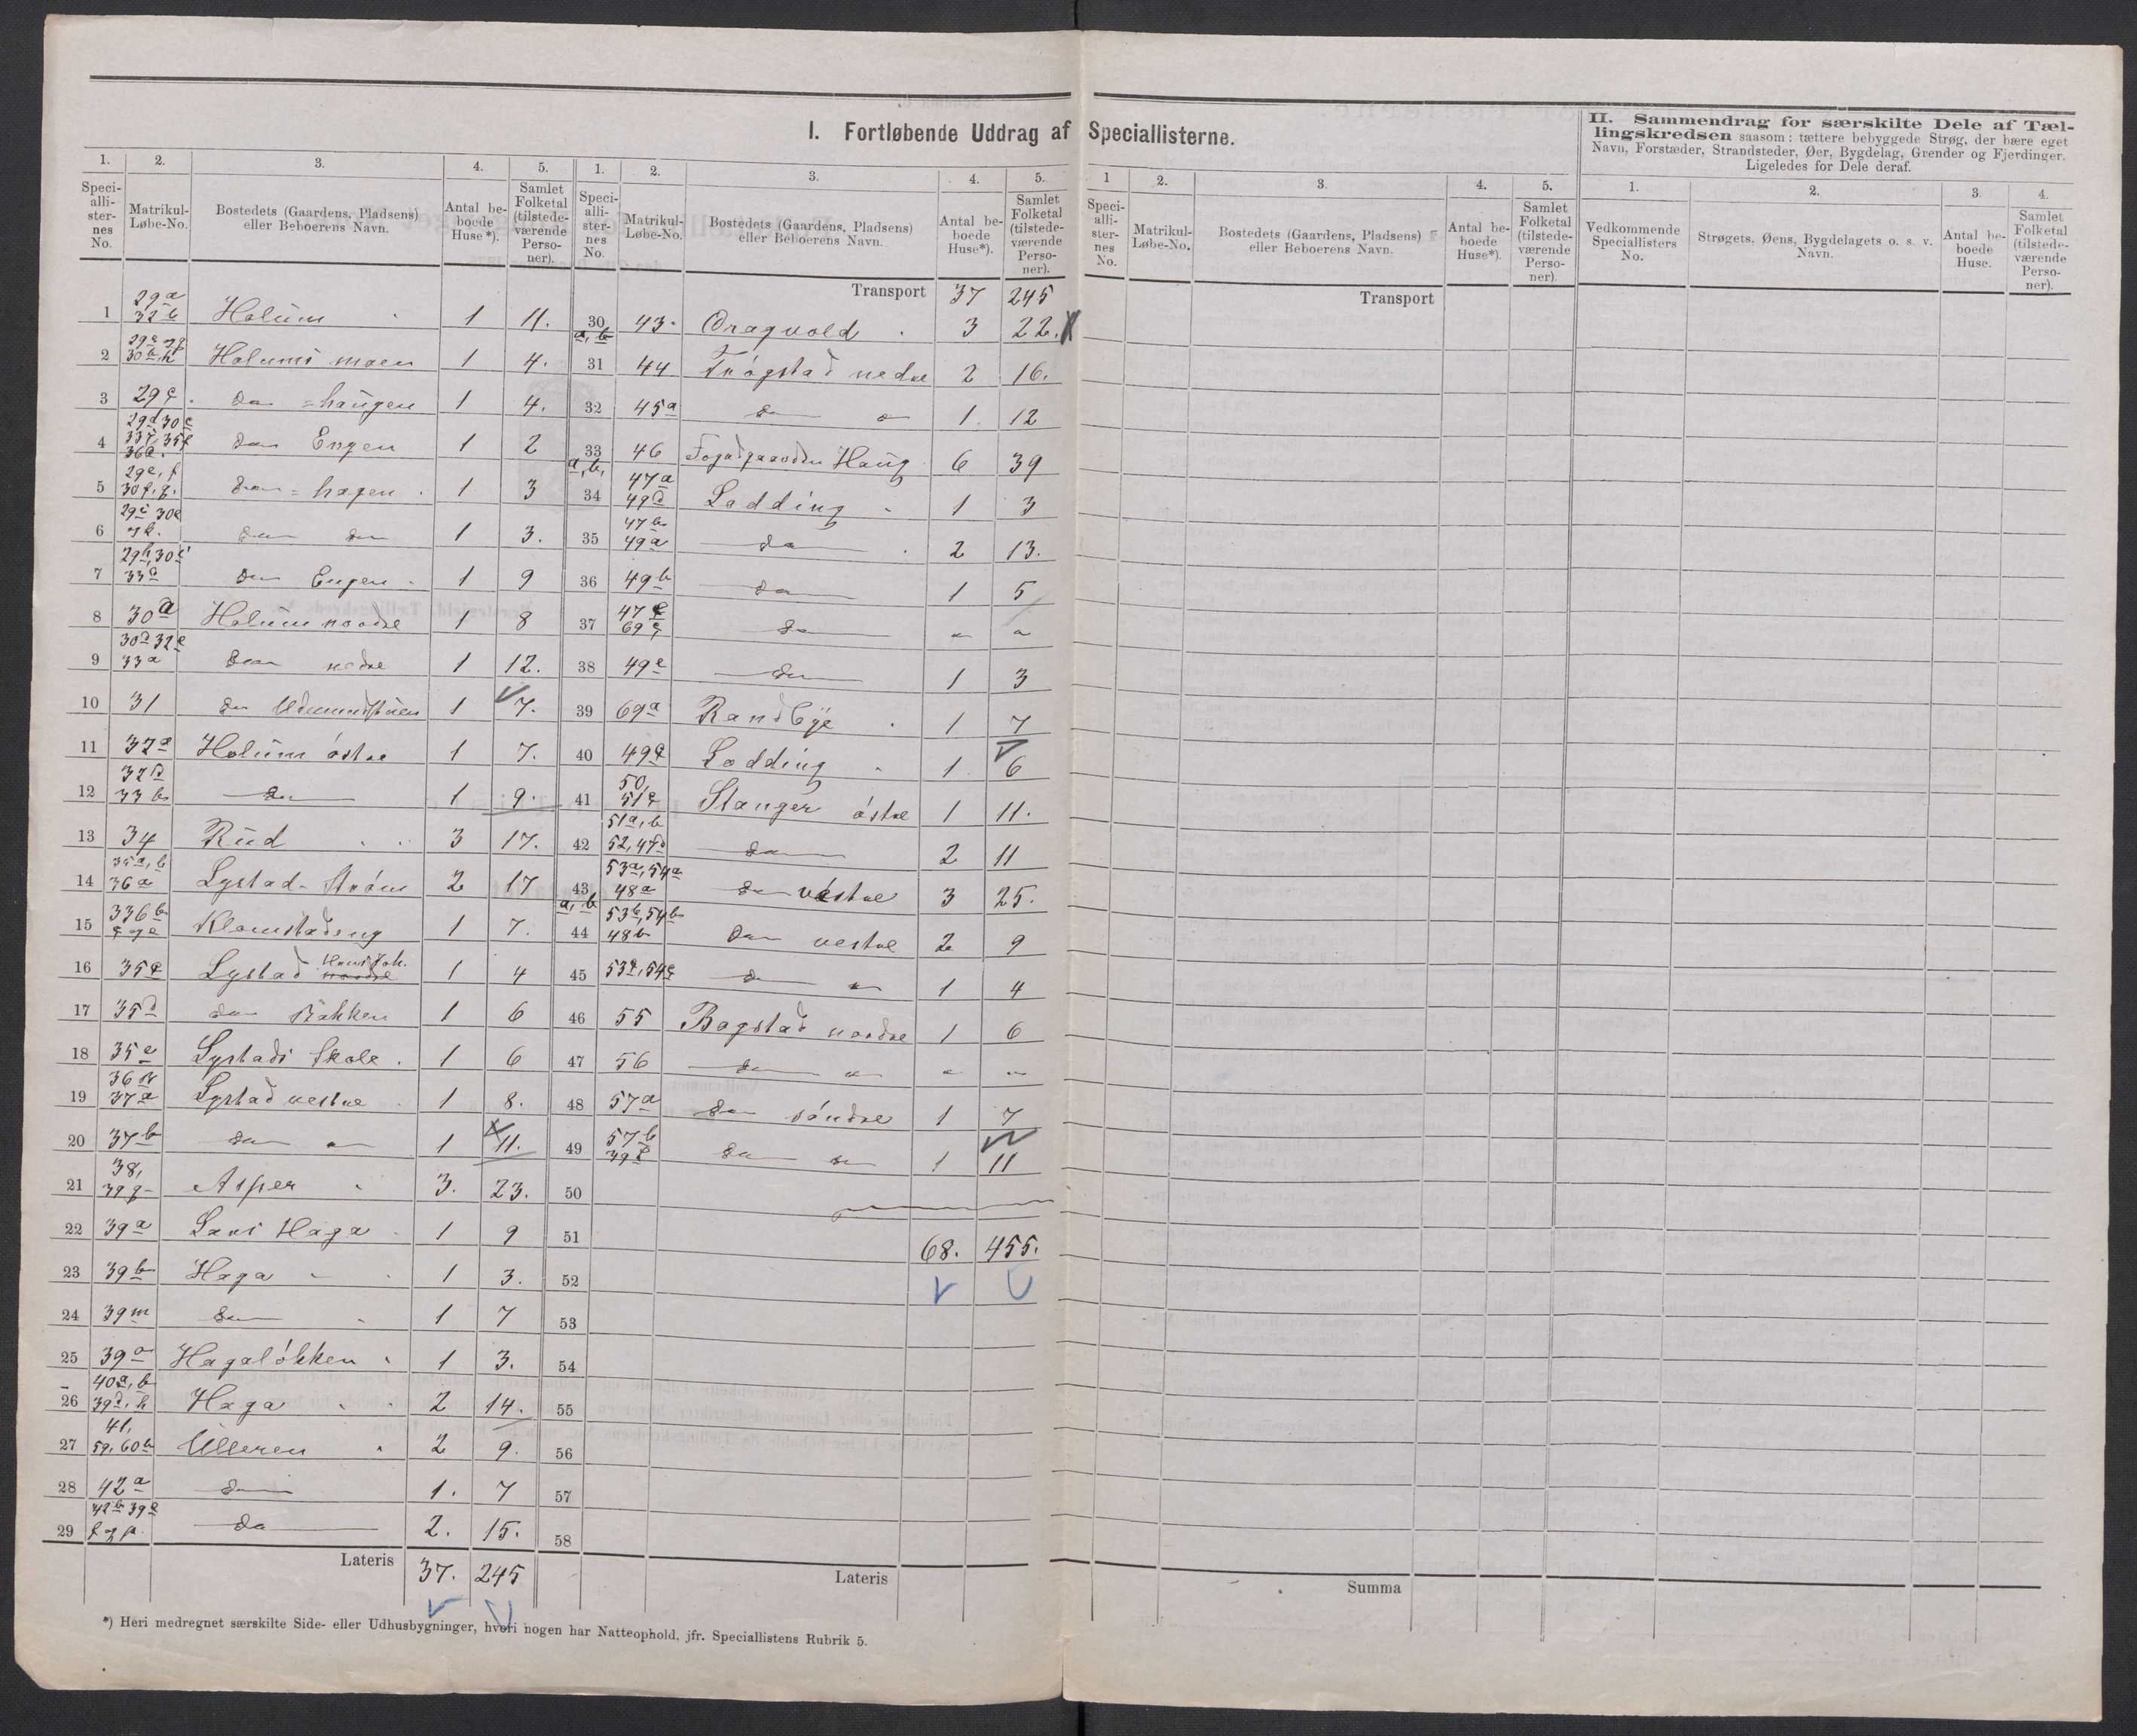 I. Fortløbende Uddrag af Speciallisterne.
II. Sammendrag for særskilte Dele af Tæl-
lingskredsen saasom: tættere bebyggede Strøg, der bære eget
Navn, Forstæder, Strandsteder, Øer, Bygdelag, Grender og Fjerdinger.
Ligeledes for Dele deraf.
1. 2. 3. 4. 5. 1. 2. 3. 4. 5. 1 2. 3. 4. 5. 1. 2. 3. 4.
Speci-alli-ster-nes No. Matrikul-Løbe-No. Bostedets (Gaardens, Pladsens) eller Beboerens Navn. Antal be-boede Huse*). Samlet Folketal (tilstede-værende Perso-ner).
Speci-alli-ster-nes No. Matrikul-Løbe-No. Bostedets (Gaardens, Pladsens) eller Beboerens Navn. Antal be-boede Huse*). Samlet Folketal (tilstede-værende Perso-ner).
Speci-alli-ster-nes No. Matrikul-Løbe-No. Bostedets (Gaardens, Pladsens) eller Beboerens Navn. Antal be-boede Huse*). Samlet Folketal (tilstede-værende Perso-ner).
Vedkommende Speciallisters No. Strøgets, Øens, Bygdelagets o. s. v. Navn. Antal be-boede Huse. Samlet Folketal (tilstede-værende Perso-ner).
1 29a 32b Holum 1 11.
2 Holumsmoen 1 4.
3 29c. do =haugen 1 4.
4 29d 30c 36d. do Engen 1 2
5 29e, f 30f.g. do = hagen 1 3
6 do do 1 3.
7 do Engen 1 9
8 30a Holum nordre 1 8
9 33a do nedre 1 12.
10 31 do 1 7.
11 32a Holum östre 1 7.
12 32d 33b do 1 9.
13 34 Rud 3 17.
14 35a, b 36a Lystad-Ström 2 17
15 Klomstadeng 1 7.
16 35c Lystad Hans Joh. 1 4
17 35d do Bakken 1 6
18 35e Lystads Skole 1 6
19 37a Lystad vestre 1 8.
20 37b do " 1 11.
21 38, 39g Asper 3. 23.
22 39a Lars Haga 1 9
23 39b Haga 1 3.
24 39m do 1 7
25 39o Hagalökken 1 3.
26 40a, b 39d, h Haga 2 14.
27 41, 59, 60b Ulleren 2 9.
28 42a do 1. 7
29 42b 39e do 2. 15.
Lateris 37. 245
Transport 37 245
30 a, b 43. Dragvold 3 22.
31 44 Frógstad nedre 2 16.
32 45a do " 1. 12
33 a, b, 46 Fogdgaarden Haug 6 39
34 47a 49d Lodding 1 3
35 47b 49a do 2 13.
36 49b do 1 5
37 47c 69c do " "
38 49e do 1 3
39 69a Randbye 1 7
40 49c Lodding 1 6
41 50, 51c Stanger östre 1 11.
42 51a, b 52, 47d do 2 11
43 a, b 53a, 54a 48a do vestre 3 25.
44 53b, 54b 48b do vestre 2 9
45 53c, 54c do " 1 4
46 55 Bogstad nordre 1 6
47 56 do " " "
48 57a do söndre 1 7
49 57b do " 1 11
50
51 68. 455.
52
53
54
55
56
57
58
Lateris
Transport
Summa
*) Heri medregnet særskilte Side- eller Udhusbygninger, hvori nogen har Natteophold, jfr. Speciallistens Rubrik 5.